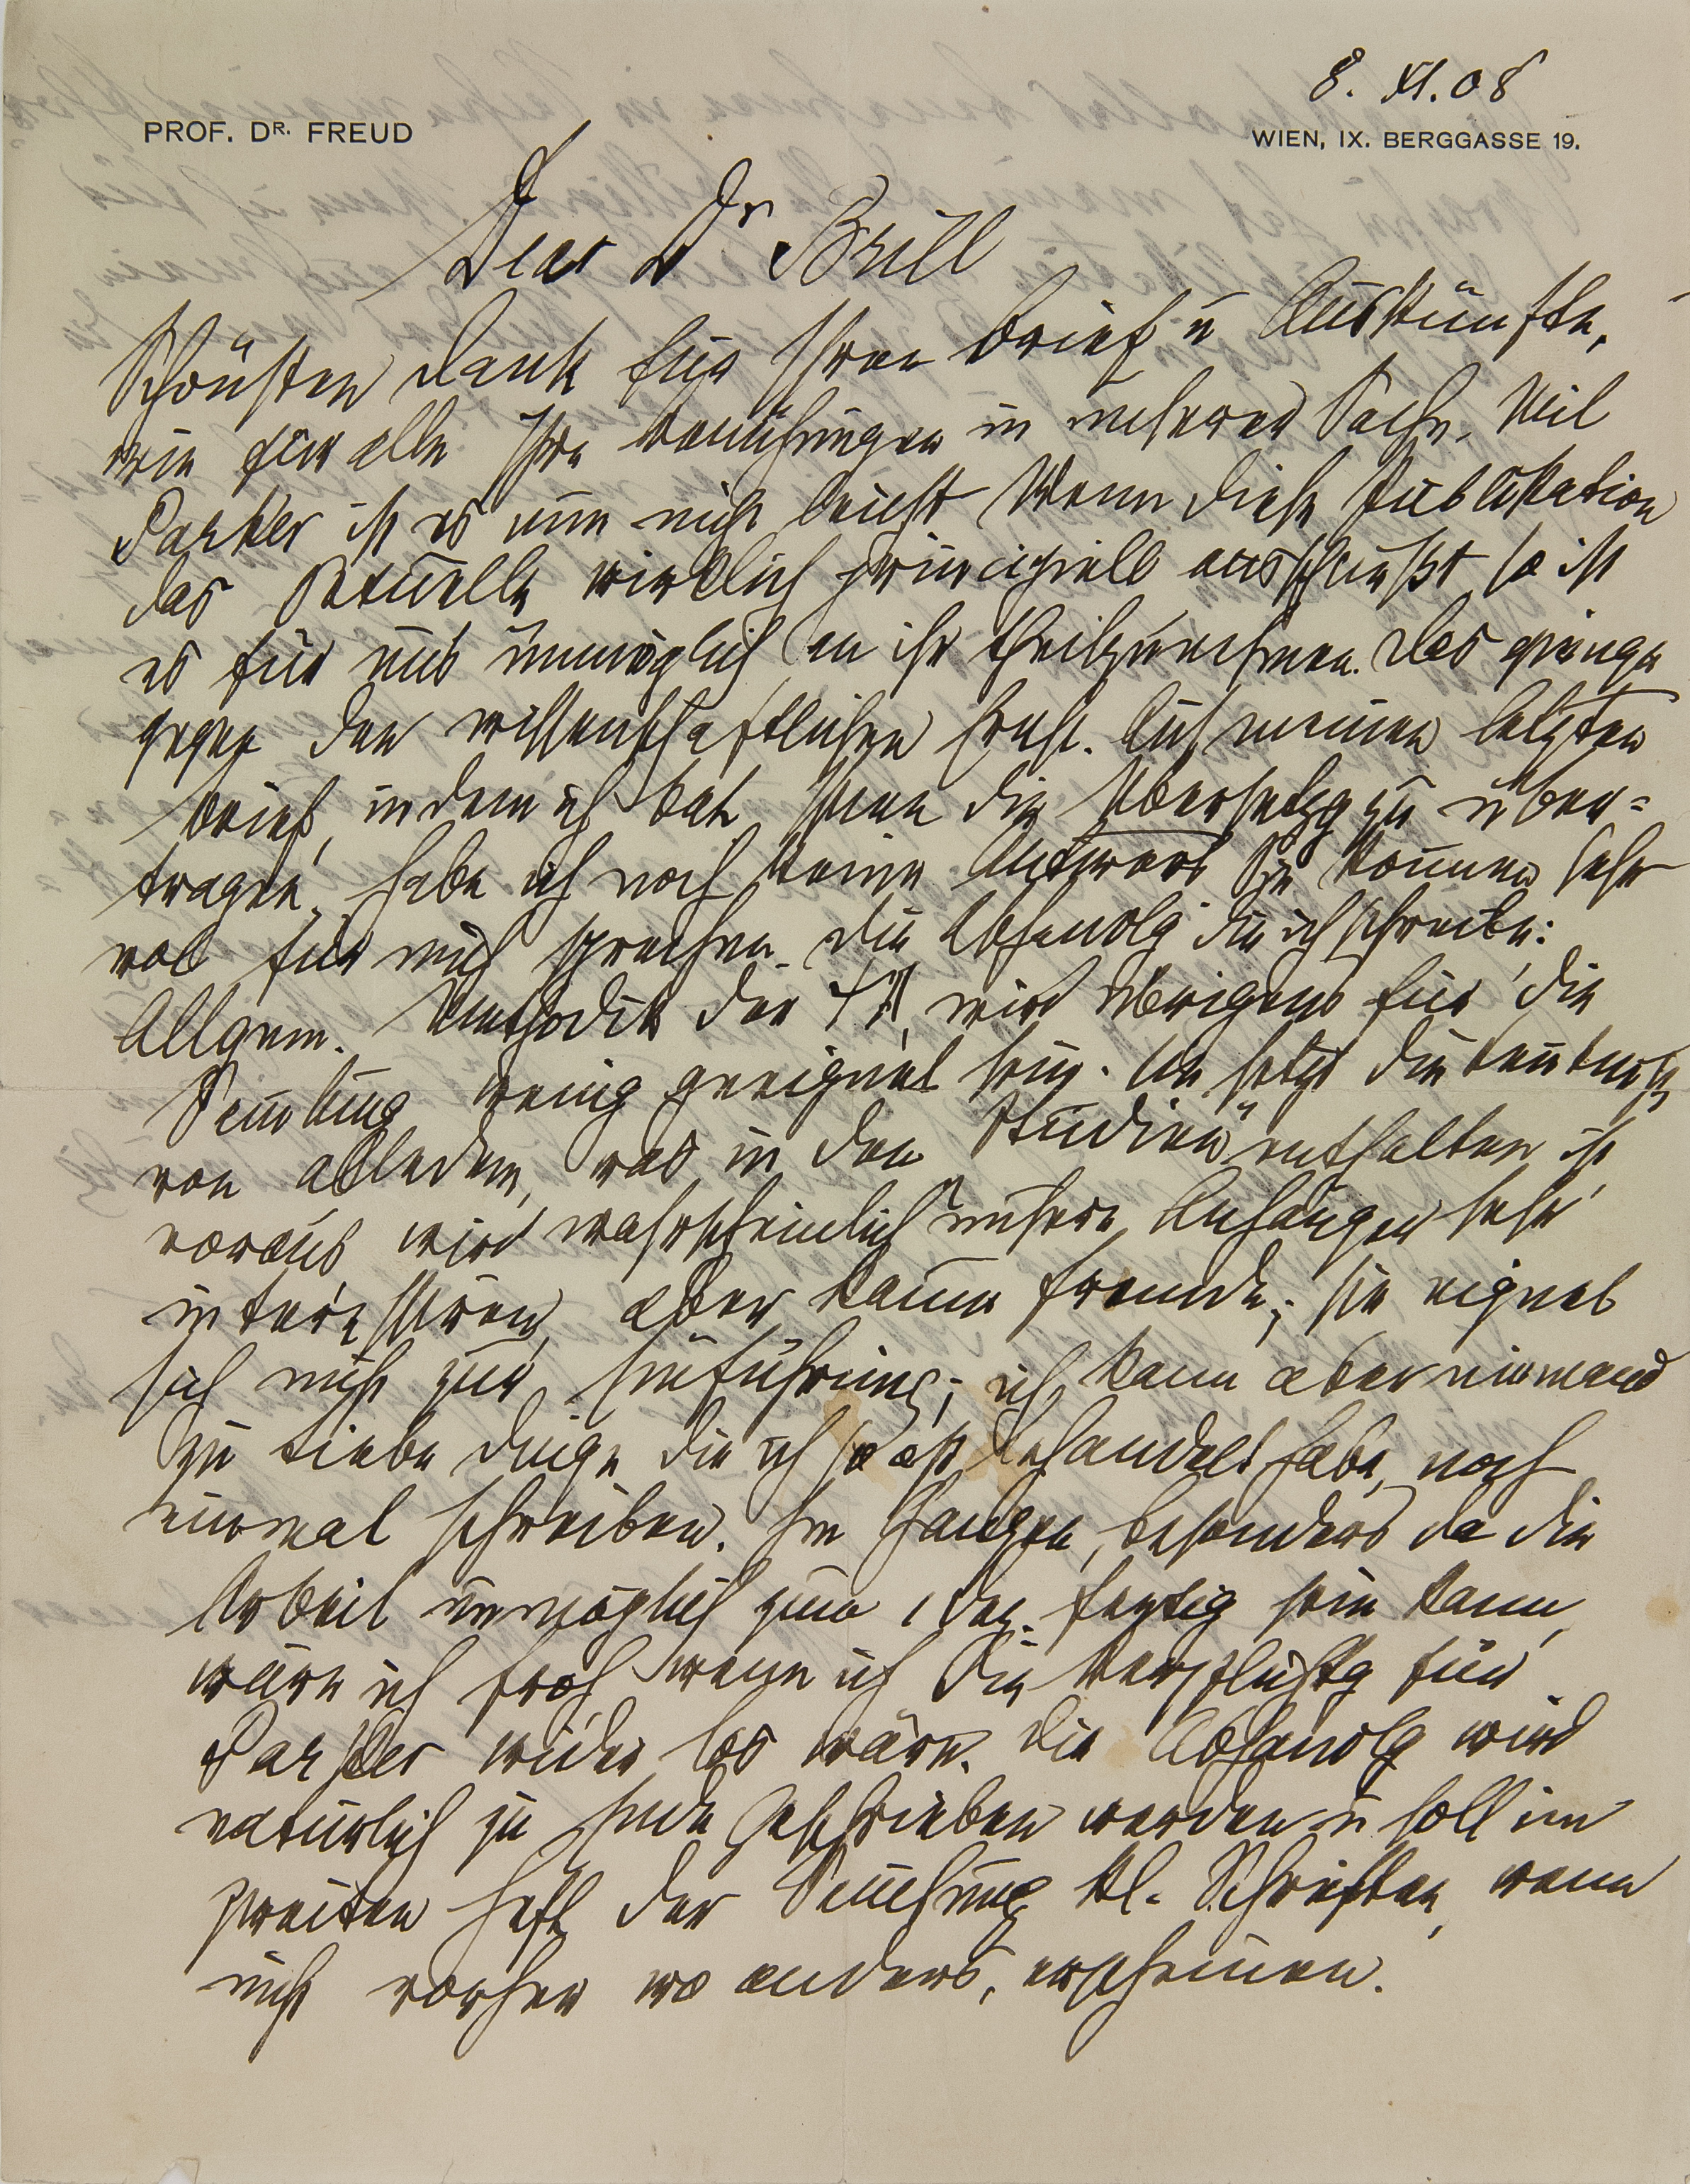 8. XI. 08
PROF. DR. FREUD
WIEN, IX. BERGGASSE 19.
Dear Dr Brill
Schönsten Dank für Ihren Brief u Auskünfte,
wie für alle Ihre Bemühungen in unserer Sache. Mit
Parker ist es nun nicht leicht Wenn diese Publikation
das Sexuelle wirklich principiell ausschließt so ist
es für uns unmöglich an ihr theilzunehmen. Das ginge
gegen den wissenschaftlichen Ernst. Auf meinen letzten
Brief, in dem ich bat Ihnen die Übersetzg zu über-
tragen, habe ich noch keine Antwort Sie können sehr
wol für mich sprechen. Die Abhandlg die ich schreibe:
Allgem. Methodik der ΨA, wird übrigens für die
Samlung wenig geeignet sein. Sie setzt die Kentnisse
von alledem, was in den „Studien" enthalten ist
voraus wird wahrscheinlich unsere Anhänger sehr
interessiren, aber kaum Fremde; sie eignet
sich nicht zur Einführung; ich kann aber niemand
zu Liebe Dinge die ich so oft behandelt habe, noch
einmal schreiben. Im Ganzen, besonders da die
Arbeit unmöglich zum 1 Dez. fertig sein kann,
wäre ich froh wenn ich die Verpflichtg für
Parker wieder los wäre. Die Abhandlg wird
natürlich zu Ende geschrieben werden u soll im
zweiten Heft der Samlung kl. Schriften, wenn
nicht vorher wo anders, erscheinen.